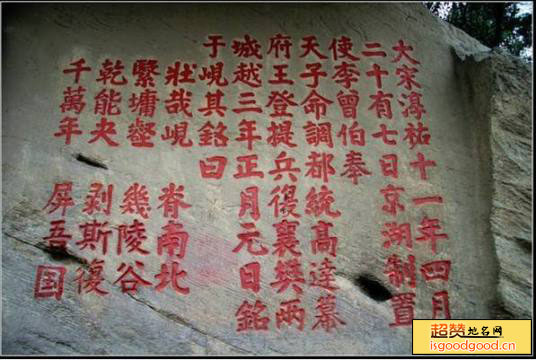 大宋淳祐十一年四月
二十有七日京湖制置
使李曾伯奉
天子命調都統高達幕
府王登提兵復襄樊兩
城越三年正月元日銘
于峴其銘曰
壯哉峴 脊南北
繄墉壑 幾陵谷
乾能夬 剥斯復
千萬年 屏吾国
超赞地名网
isgoodgood.cn